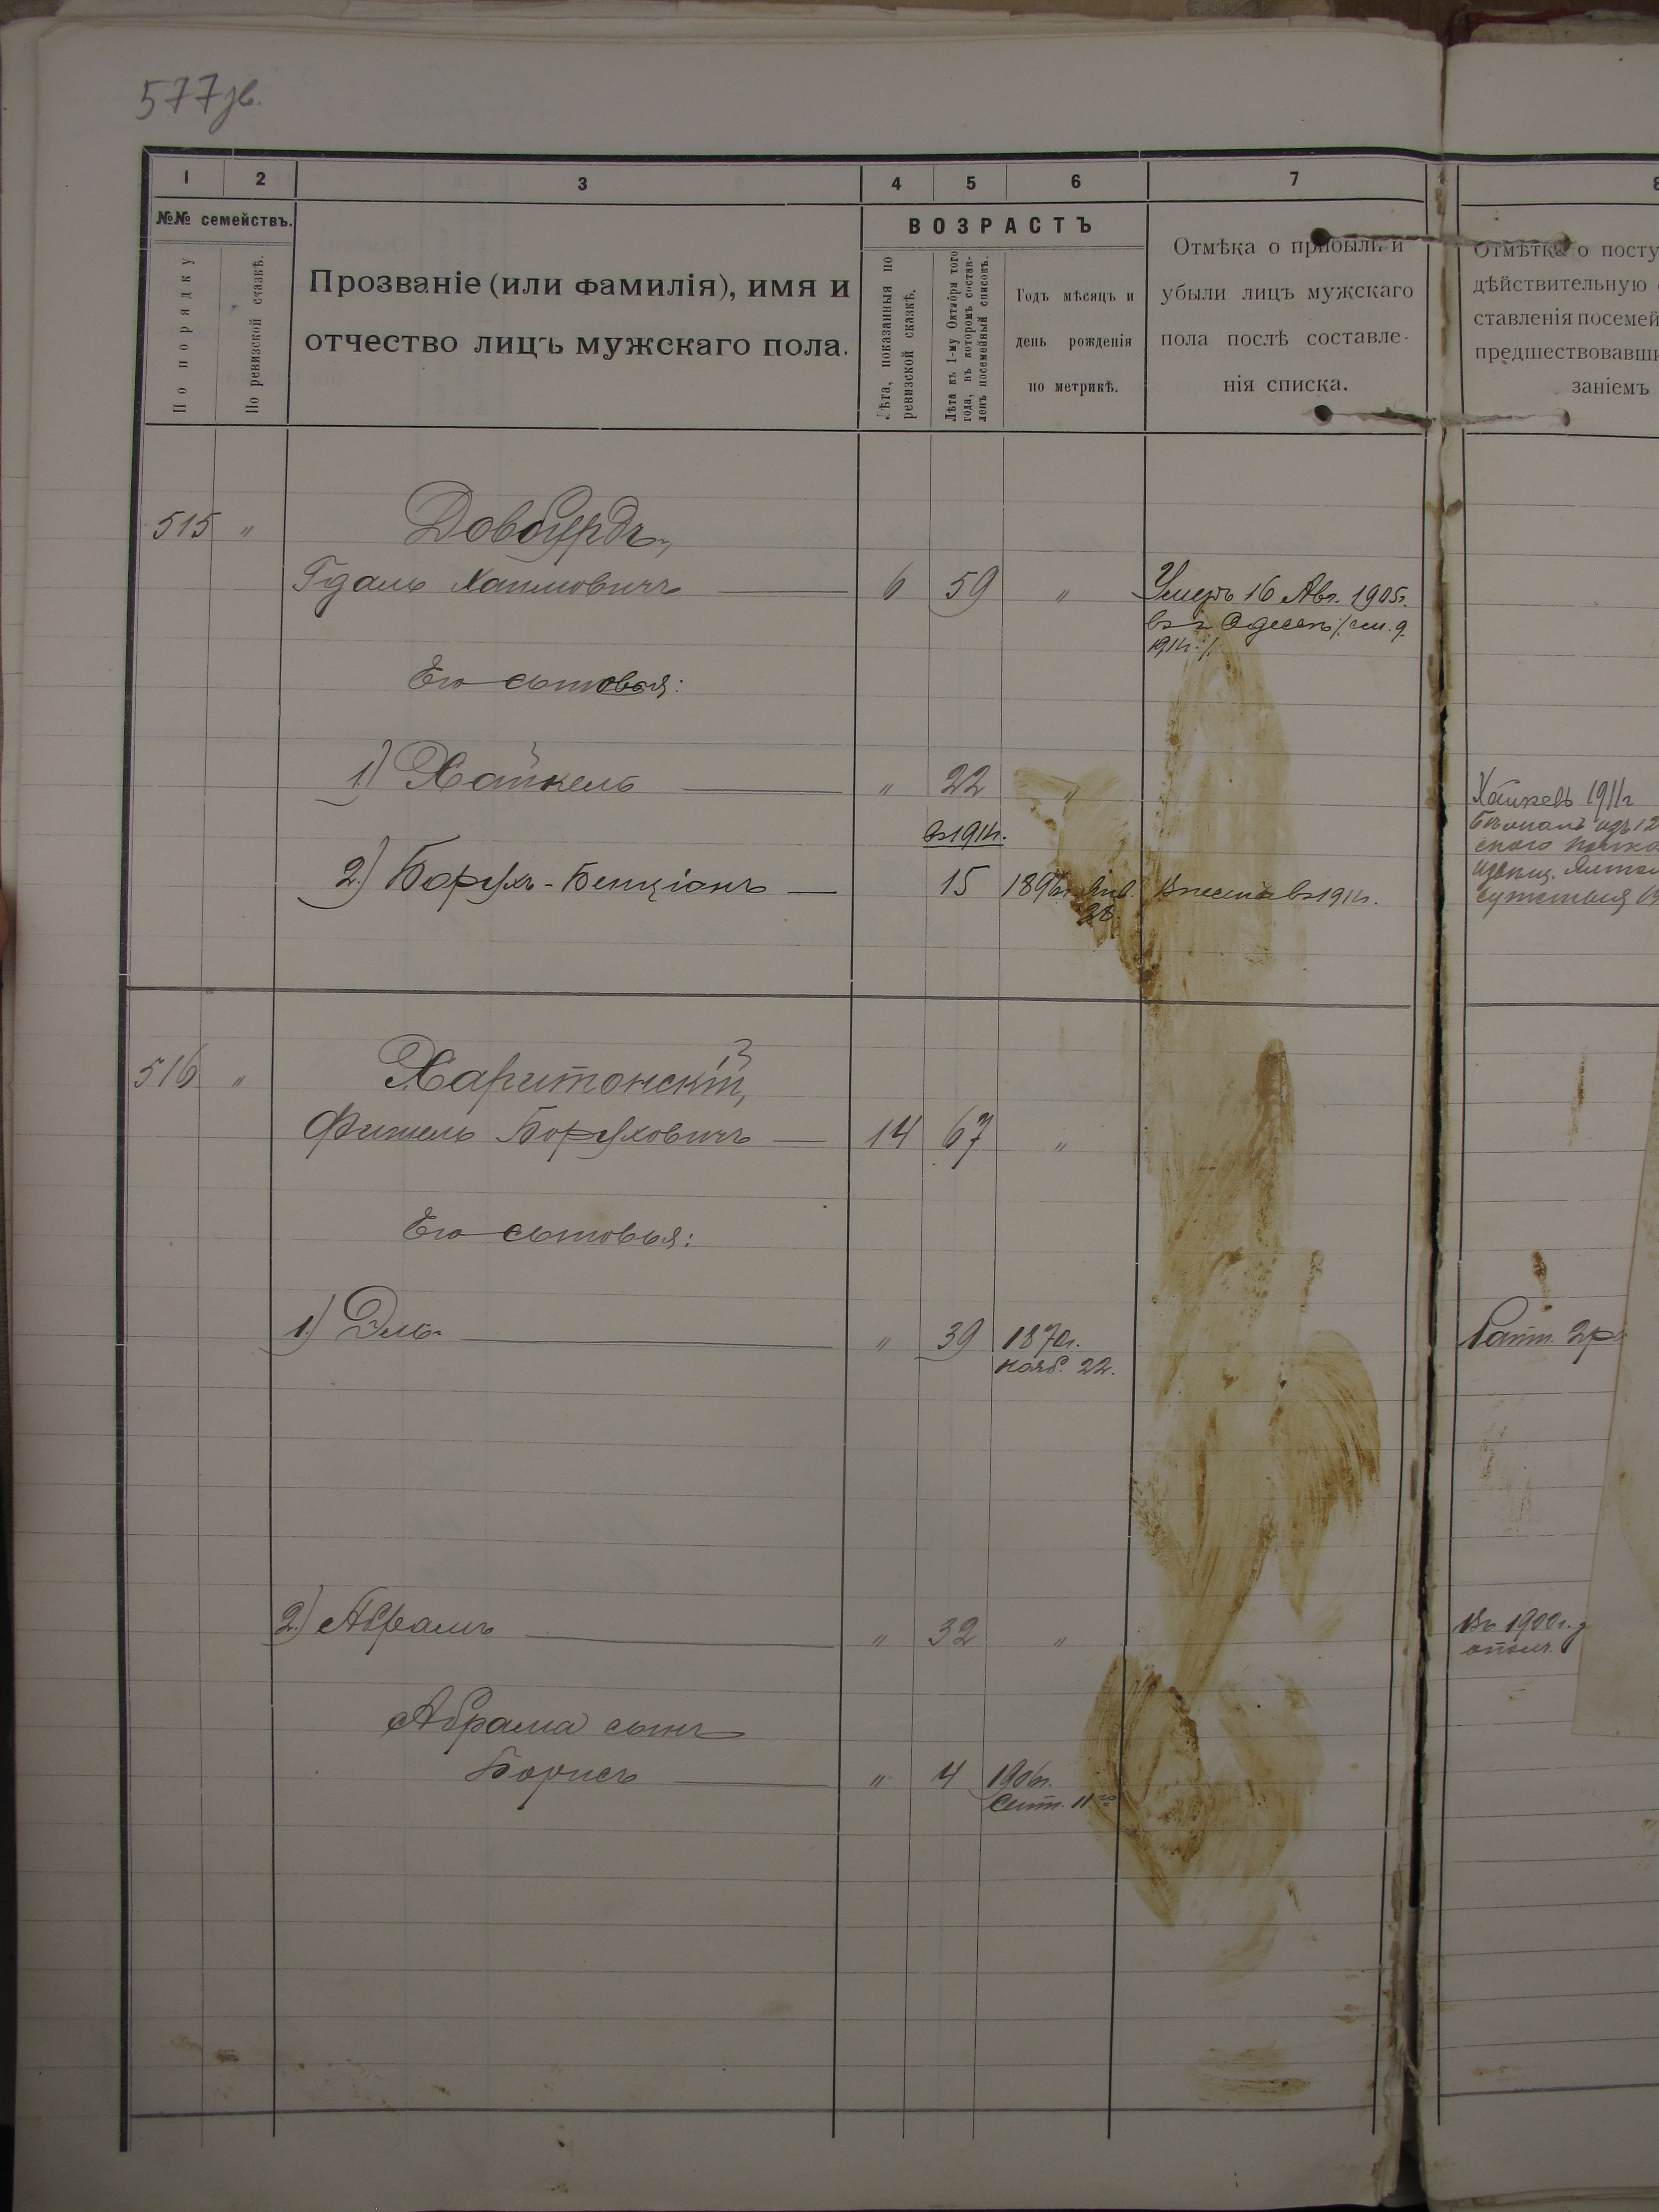 577зв.
1 2 3 4 5 6 7 8
№№ семействъ.
По порядку
По ревизской сказкѣ.
Прозваніе (или фамилія), имя и
отчество лицъ мужскаго пола.
ВОЗРАСТЪ
Лѣта, показанныя по
ревизской сказкѣ.
Лѣта къ 1-му Октября того
года, въ которомъ состав-
ленъ посемейный списокъ.
Годъ мѣсяцъ и
день рожденія
по метрикѣ.
Отмѣка о прибыли и
убыли лицъ мужскаго
пола послѣ составле-
нія списка.
Отмѣтка о посту
дѣйствительную
ставленія посемей
предшествовавши
заніемъ
515 " Довбурдъ,
Гдаль Хаимовичъ 6 59 " Умеръ 16 Авг. 1905г.
въ г Одессѣ /: см. д.
1911г. :/
Его сыновья:
1.) Хайкель " 22 "
Хайкель 1911г
въ 1911г.
2.) Борухъ-Бенціонъ 15 1896г. Янв. 28. Внесенъ въ 1911г.
516 " Харитонскій,
Фишель Боруховичъ 14 67 "
Его сыновья:
1.) Эль " 39 1870г.
нояб. 22.
Ратн. 2 р
2.) Абрамъ " 32 "
Въ 1900г.
ополч.
Абрама сынъ
Борисъ " 4 1906г.
Сент. 11го